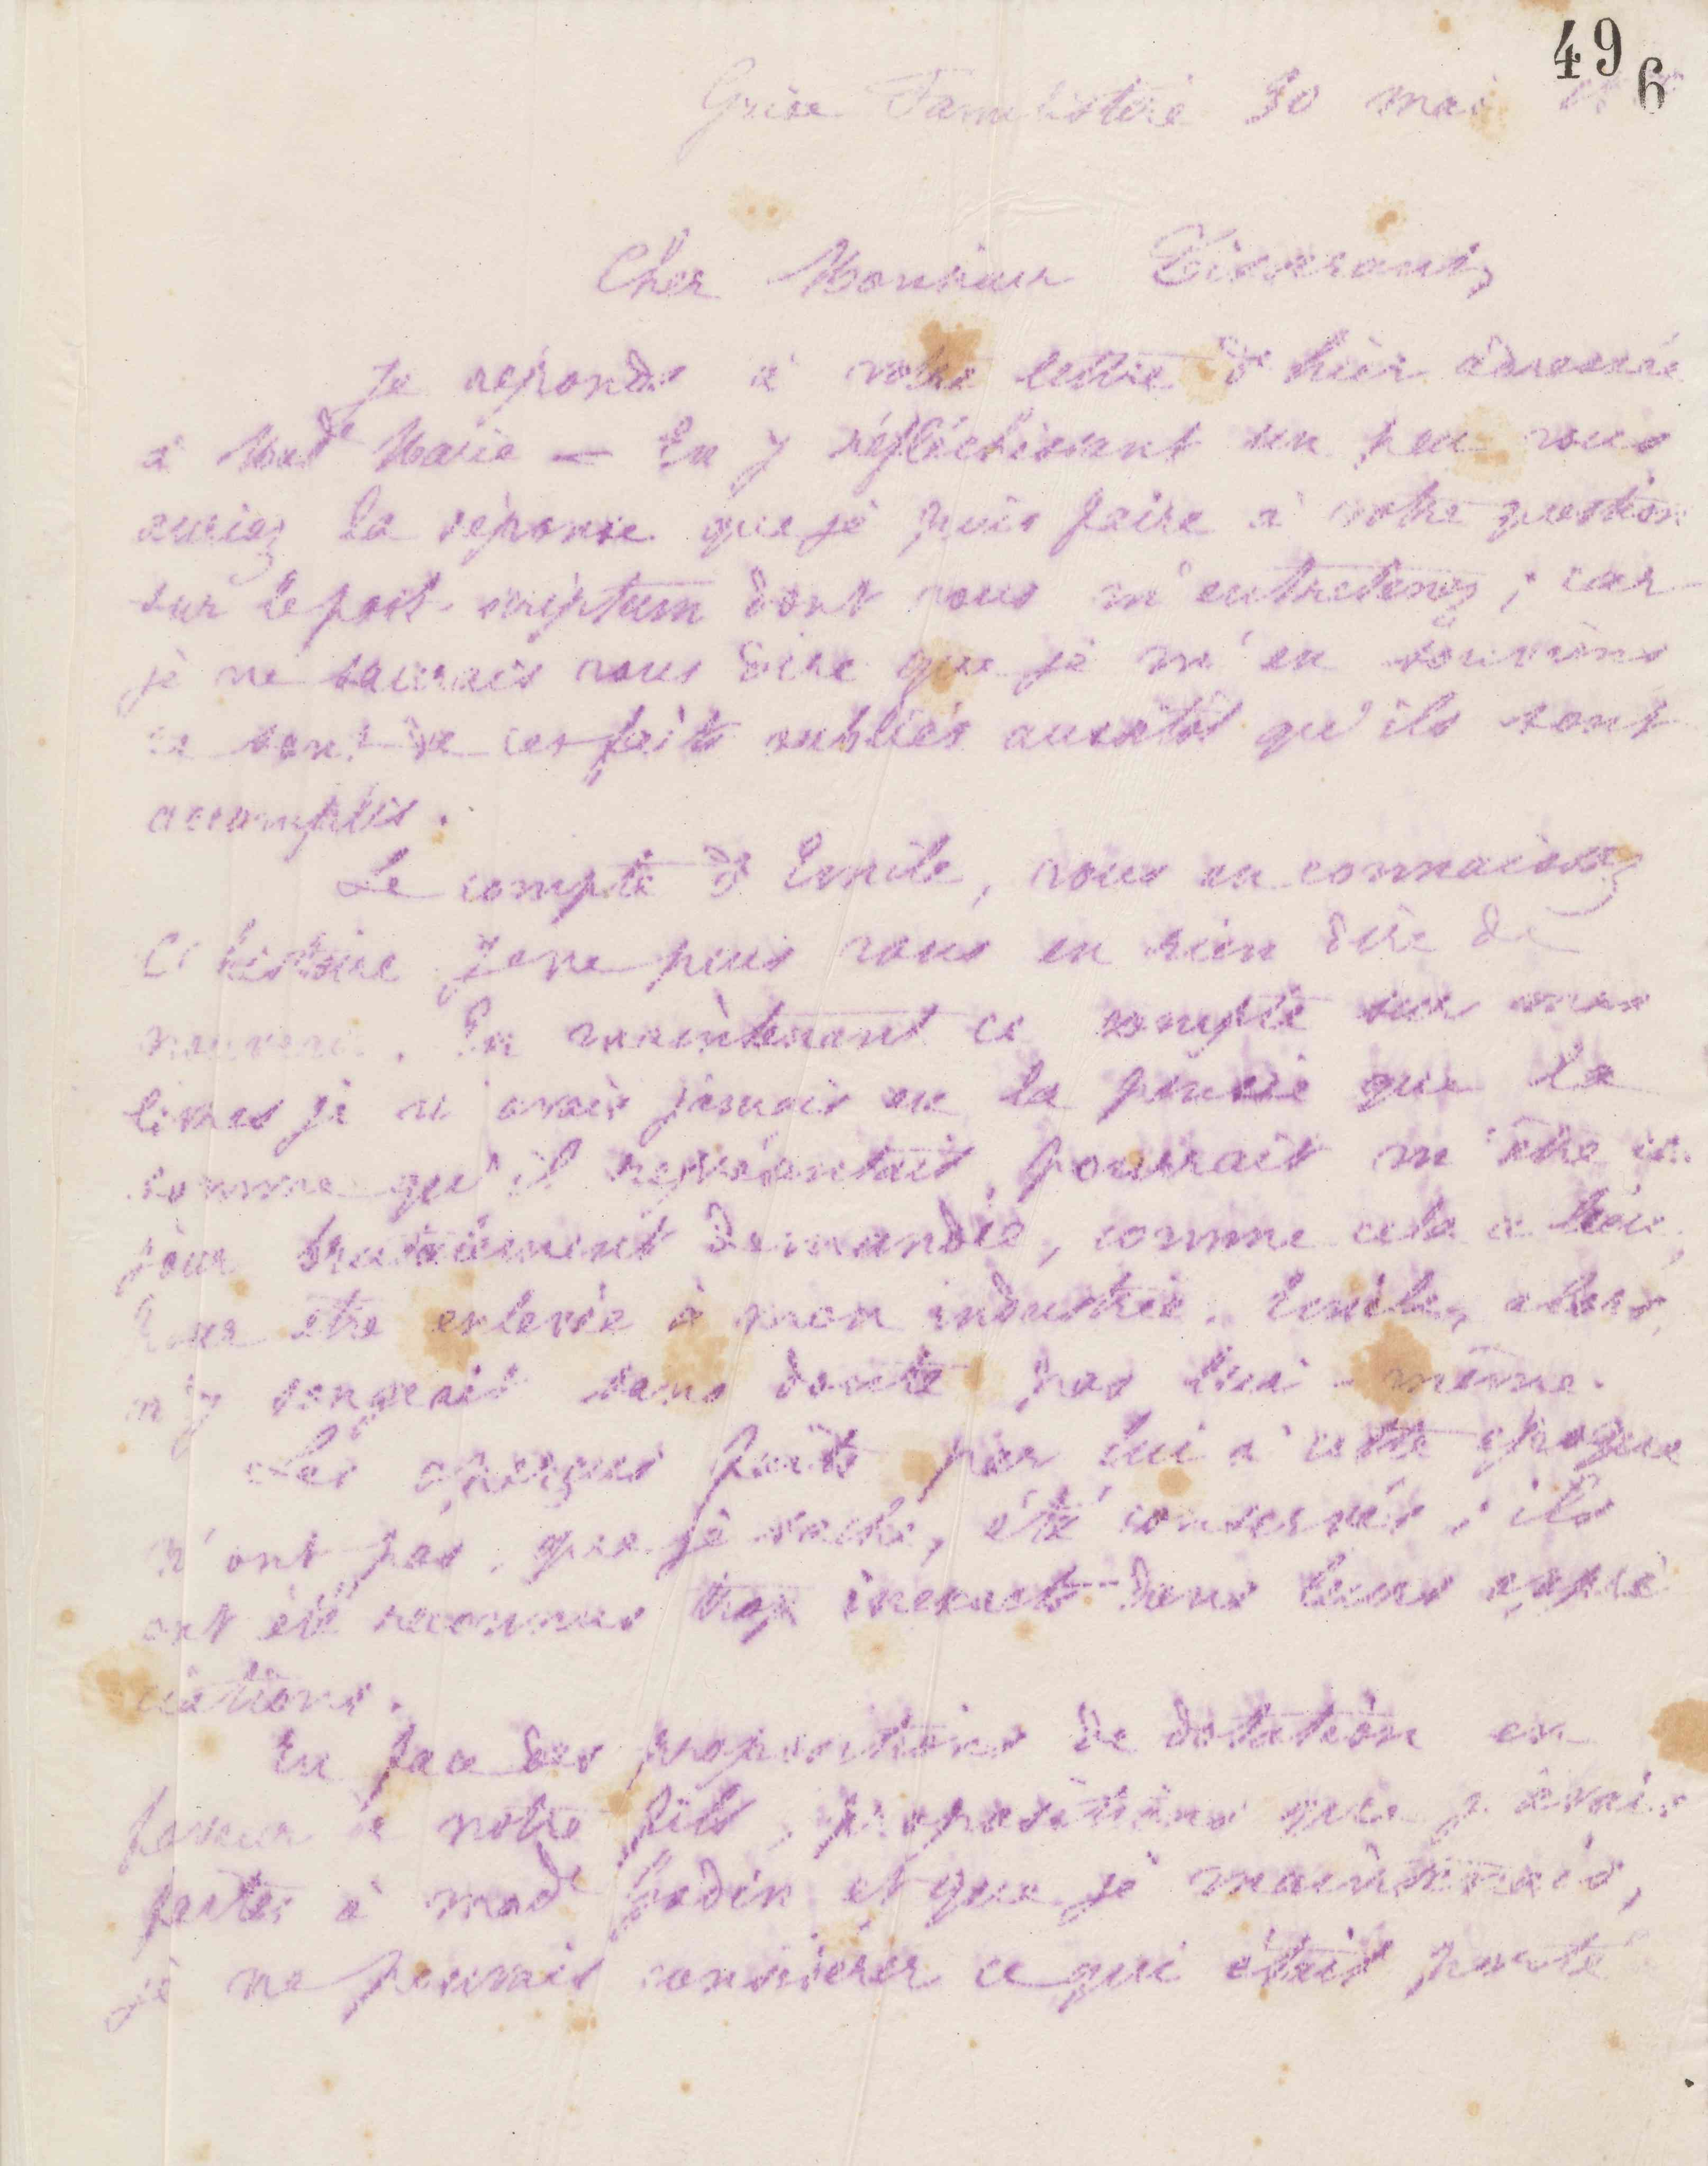 49
6
Guise Familistère 30 mai
Cher Monsieur Tisserant,
Je réponds à votre lettre d'hier adressée
à Mad^e Marie — En y réfléchissant un peu vous
auriez la réponse que je puis faire à votre question
sur le post-scriptum dont vous m'entretenez ; car
je ne saurais vous dire que je m'en souviens
ce sont de ces faits oubliés aussitôt qu'ils sont
accomplis.
Le compte d'Emile, vous en connaissez
l'histoire je ne puis vous en rien dire de
nouveau. En maintenant ce compte sur mes
livres je n'avais jamais eu la pensée que la
somme qu'il représentait, pourrait m'être un
jour brusquement demandée, comme cela a lieu,
pour être enlevée à mon industrie. Emile, alors,
n'y songeait sans doute pas lui-même.
Les aperçus faits par lui à cette époque
n'ont pas, que je sache, été conservés ; ils
ont été reconnus trop inexacts dans leurs appré
ciations.
En face des propositions de dotation en
faveur de notre fils, propositions que j'avais
faites à mad^e Godin et que je maintenais,
je ne pouvais considérer ce qui était porté